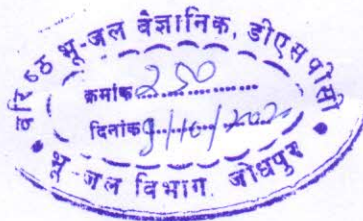 वरिष्ठ भू-जल वैज्ञानिक, डीएसपीसी
क्रमांक.....250
दिनांक
भू-जल विभाग जोधपुर